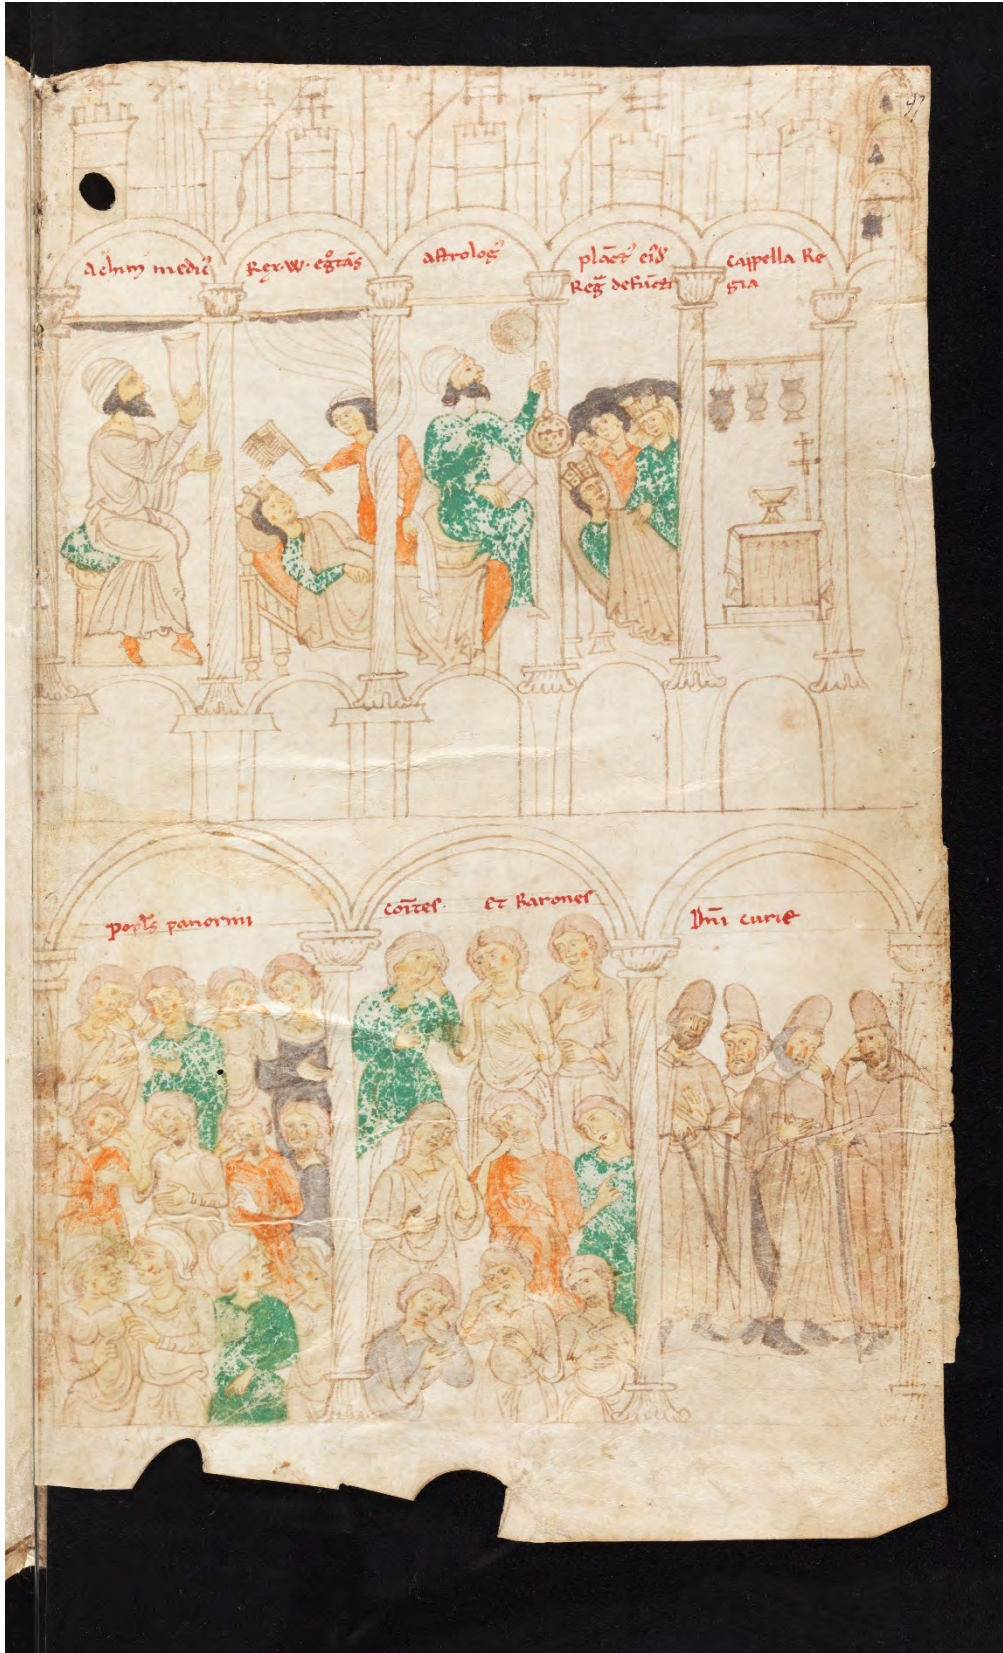 97
Achim medic᾽
Rex .W. egͦtās
Astrolog᾽
plāct᾽ eiͩ
Reg̃ defūcti
Cappella Re
gia
popl̃s panormi
com̃tes et Barones
Dñi curie